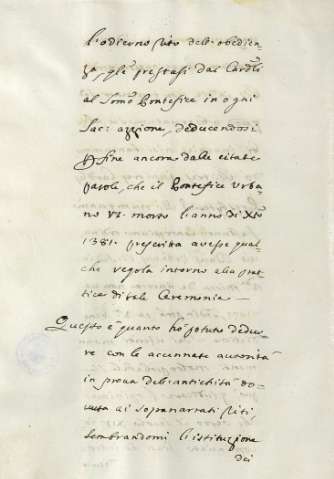 l'odierno Rito dell'obedien
za, che prestasi dai Card.li
al Som.o Pontefice in ogni
Sac: azzione, deducendosi
fine ancora dalle citate
parole, che il Pontefice Urba
no VI. morto l'anno di X.to
1381. prescritta avesse qual
che regola intorno alla prat
tica di tale Ceremonia.
Questo è quanto hò potuto dedur
re con le accennate autorità
in prova dell'antichità do
vuta ai sopranarrati Riti,
sembrandomi l'istituzione
dei